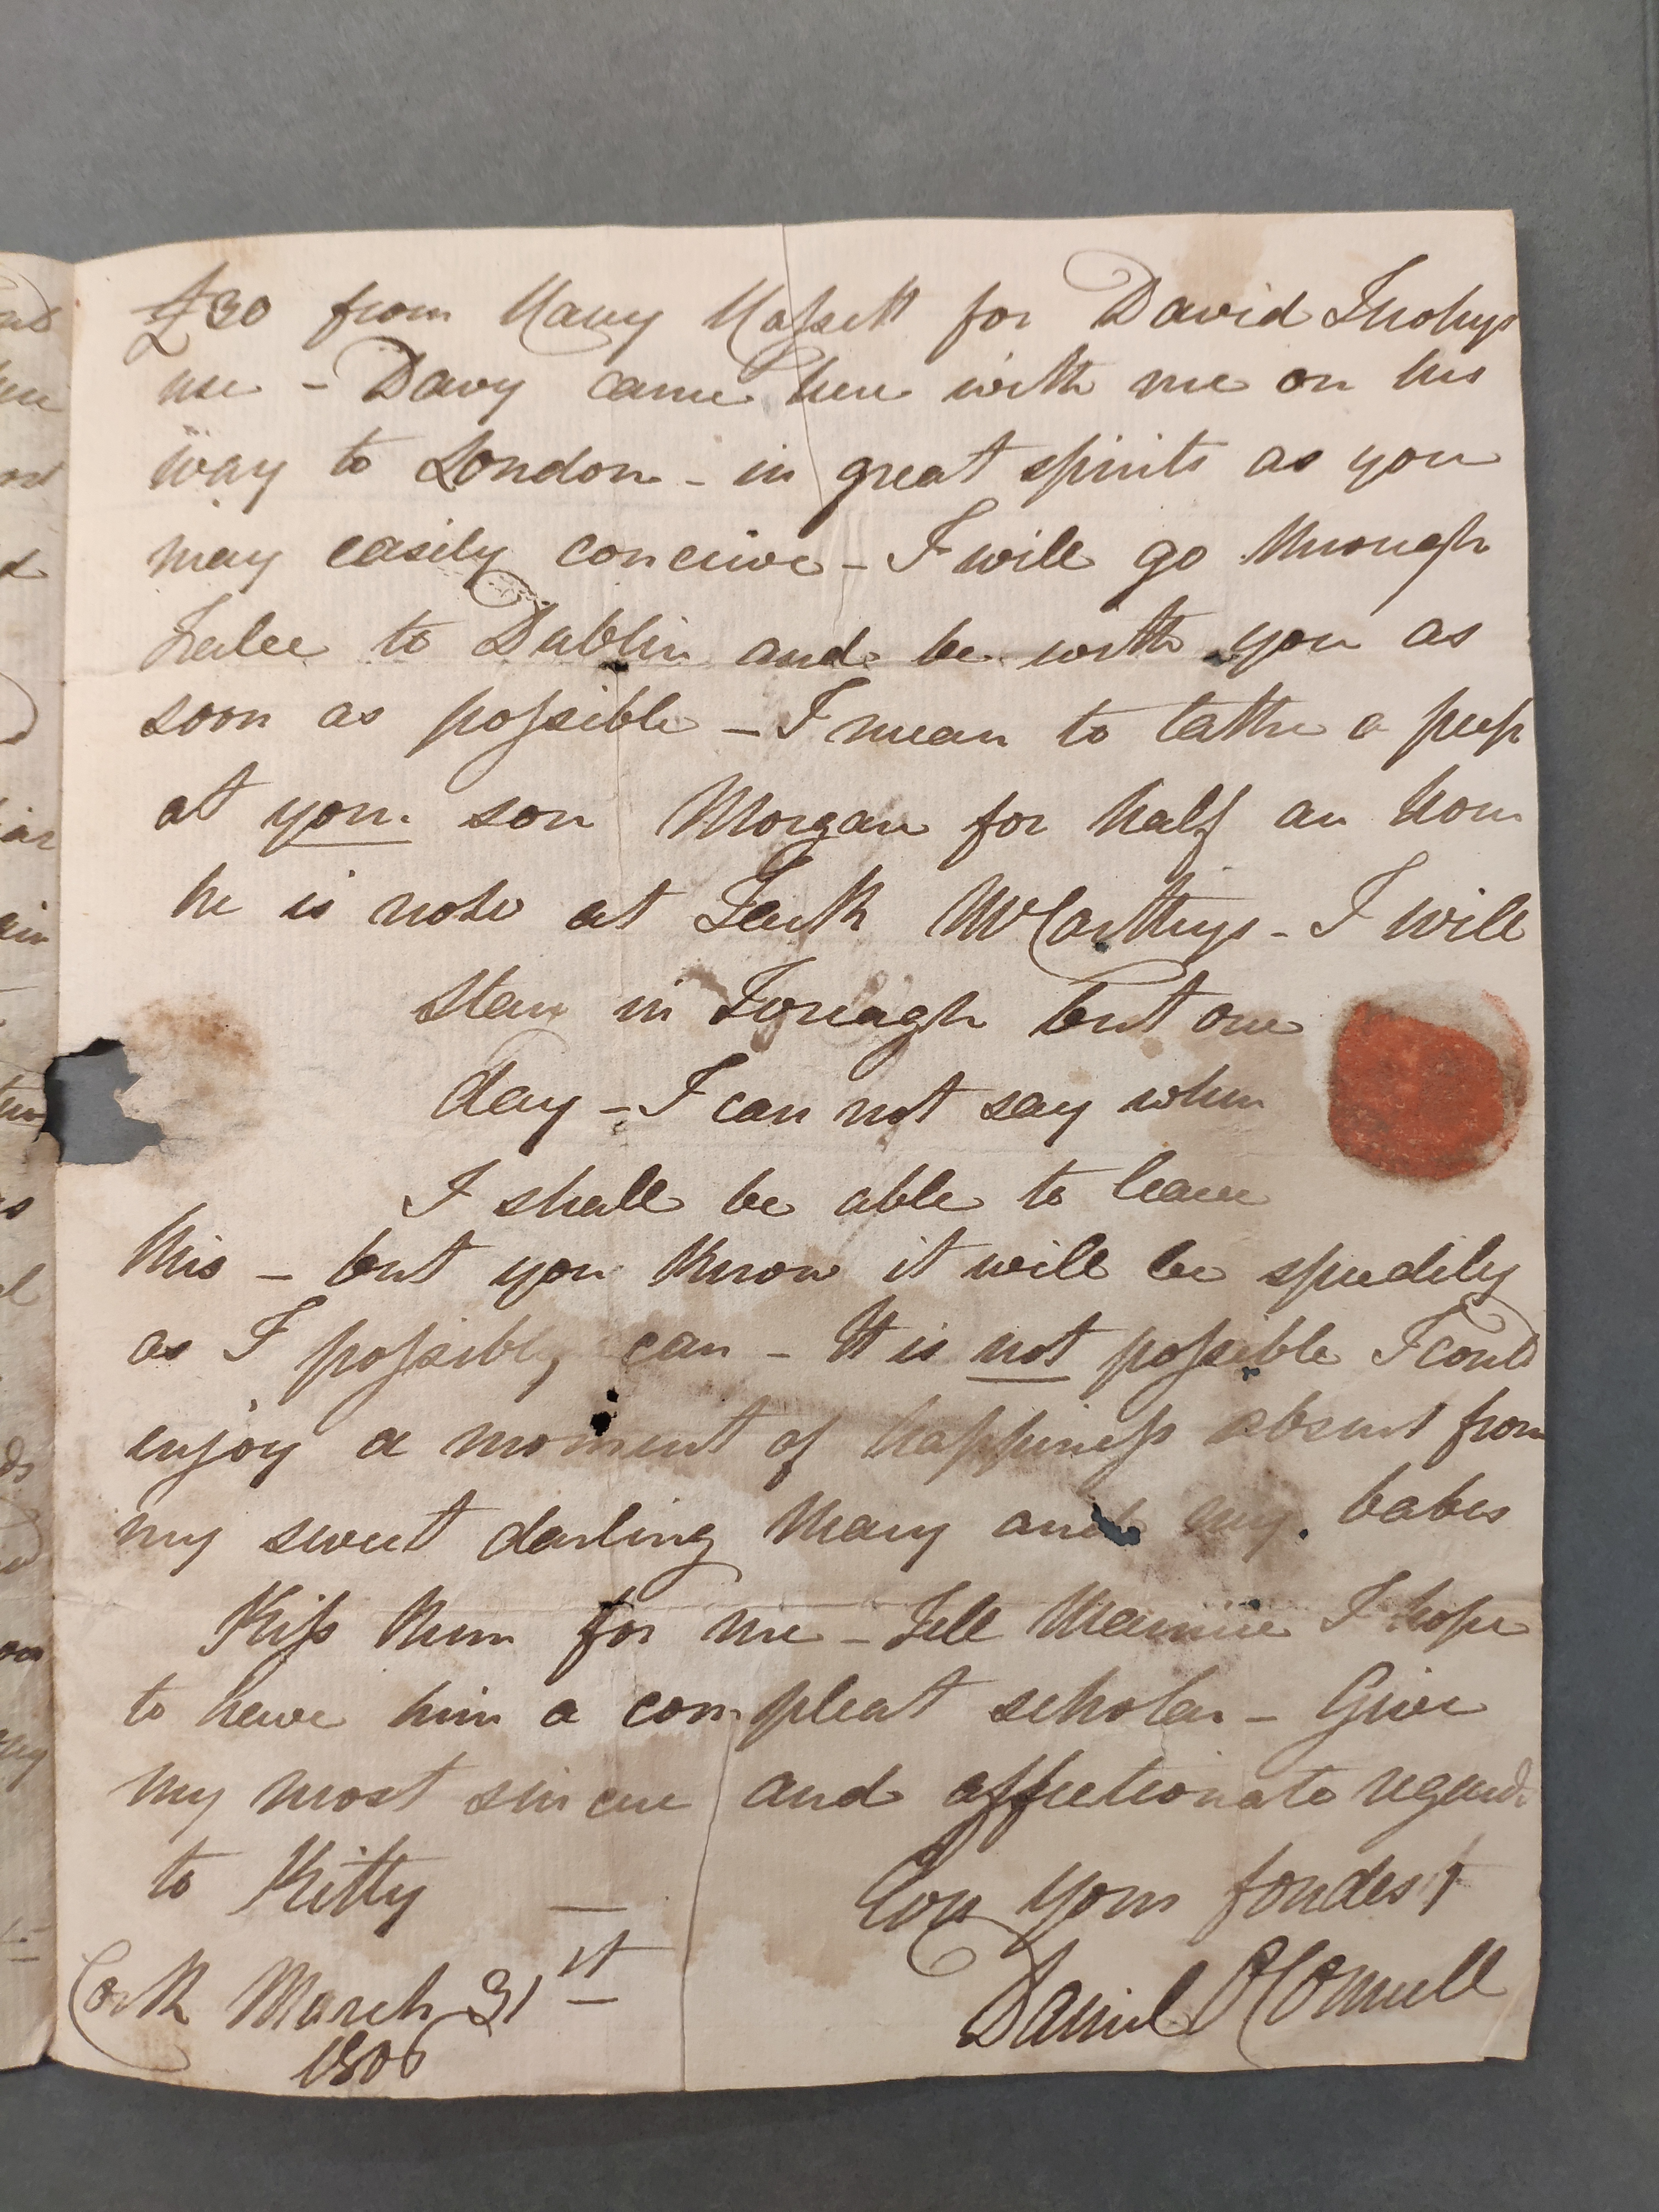 £30 from Harry Hassett for David
use - Davy came here with me on his
way to London - in great spirits as you
may easily conceive - I will go through
Tralee to Dublin and be with you as
soon as possible - I mean to take a peep
at your son Morgan for half an hour
he is now at McCarthys - I will
stay in Iveragh but one
day - I can not say when
I shall be able to leave
this - but you know it will be speedily
as I possibly can - It is not possible I could
enjoy a moment of happiness absent from
my sweet darling Mary and my babes
Kiss them for me - Tell Maurice I hope
to have him a compleat scholar - Give
my most sincere and affectionate regards
to Kitty — Ever your fondest
Daniel O'Connell
Cork March 31st
1806